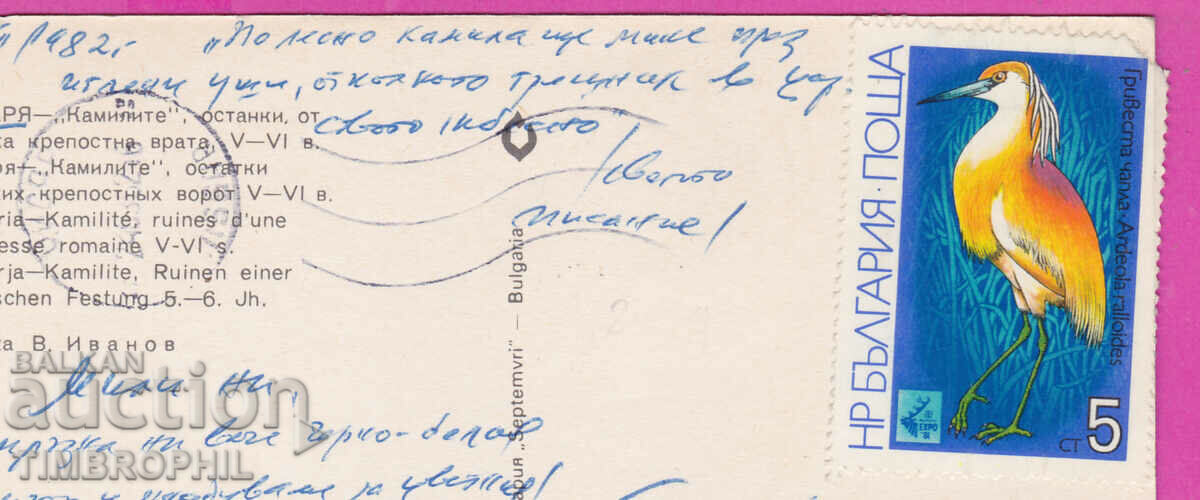 1982г. „По лесно камила ще мине през
иглени уши, отколкото грешник в цар.
ството небесно"
/Свето
писание/
АРЯ—„Камилите", останки, от
ка крепостна врата, V—VI в.
ря—„Камилите", остатки
ких крепостных ворот V—VI в.
ria—Kamilité, ruines d'une
esse romaine V-VI s.
rja—Kamilite, Ruinen einer
schen Festung 5.—6. Jh.
ка В. Иванов
Мили ни,
ни вече черно-белов
и за цветно!
ария „Septemvri" — Bulgaria
НР БЪЛГАРИЯ · ПОЩА
Гривеста чапла · Ardeola ralloides
EXPO
81
5
СТ
BALKAN
auction
TIMBROPHIL